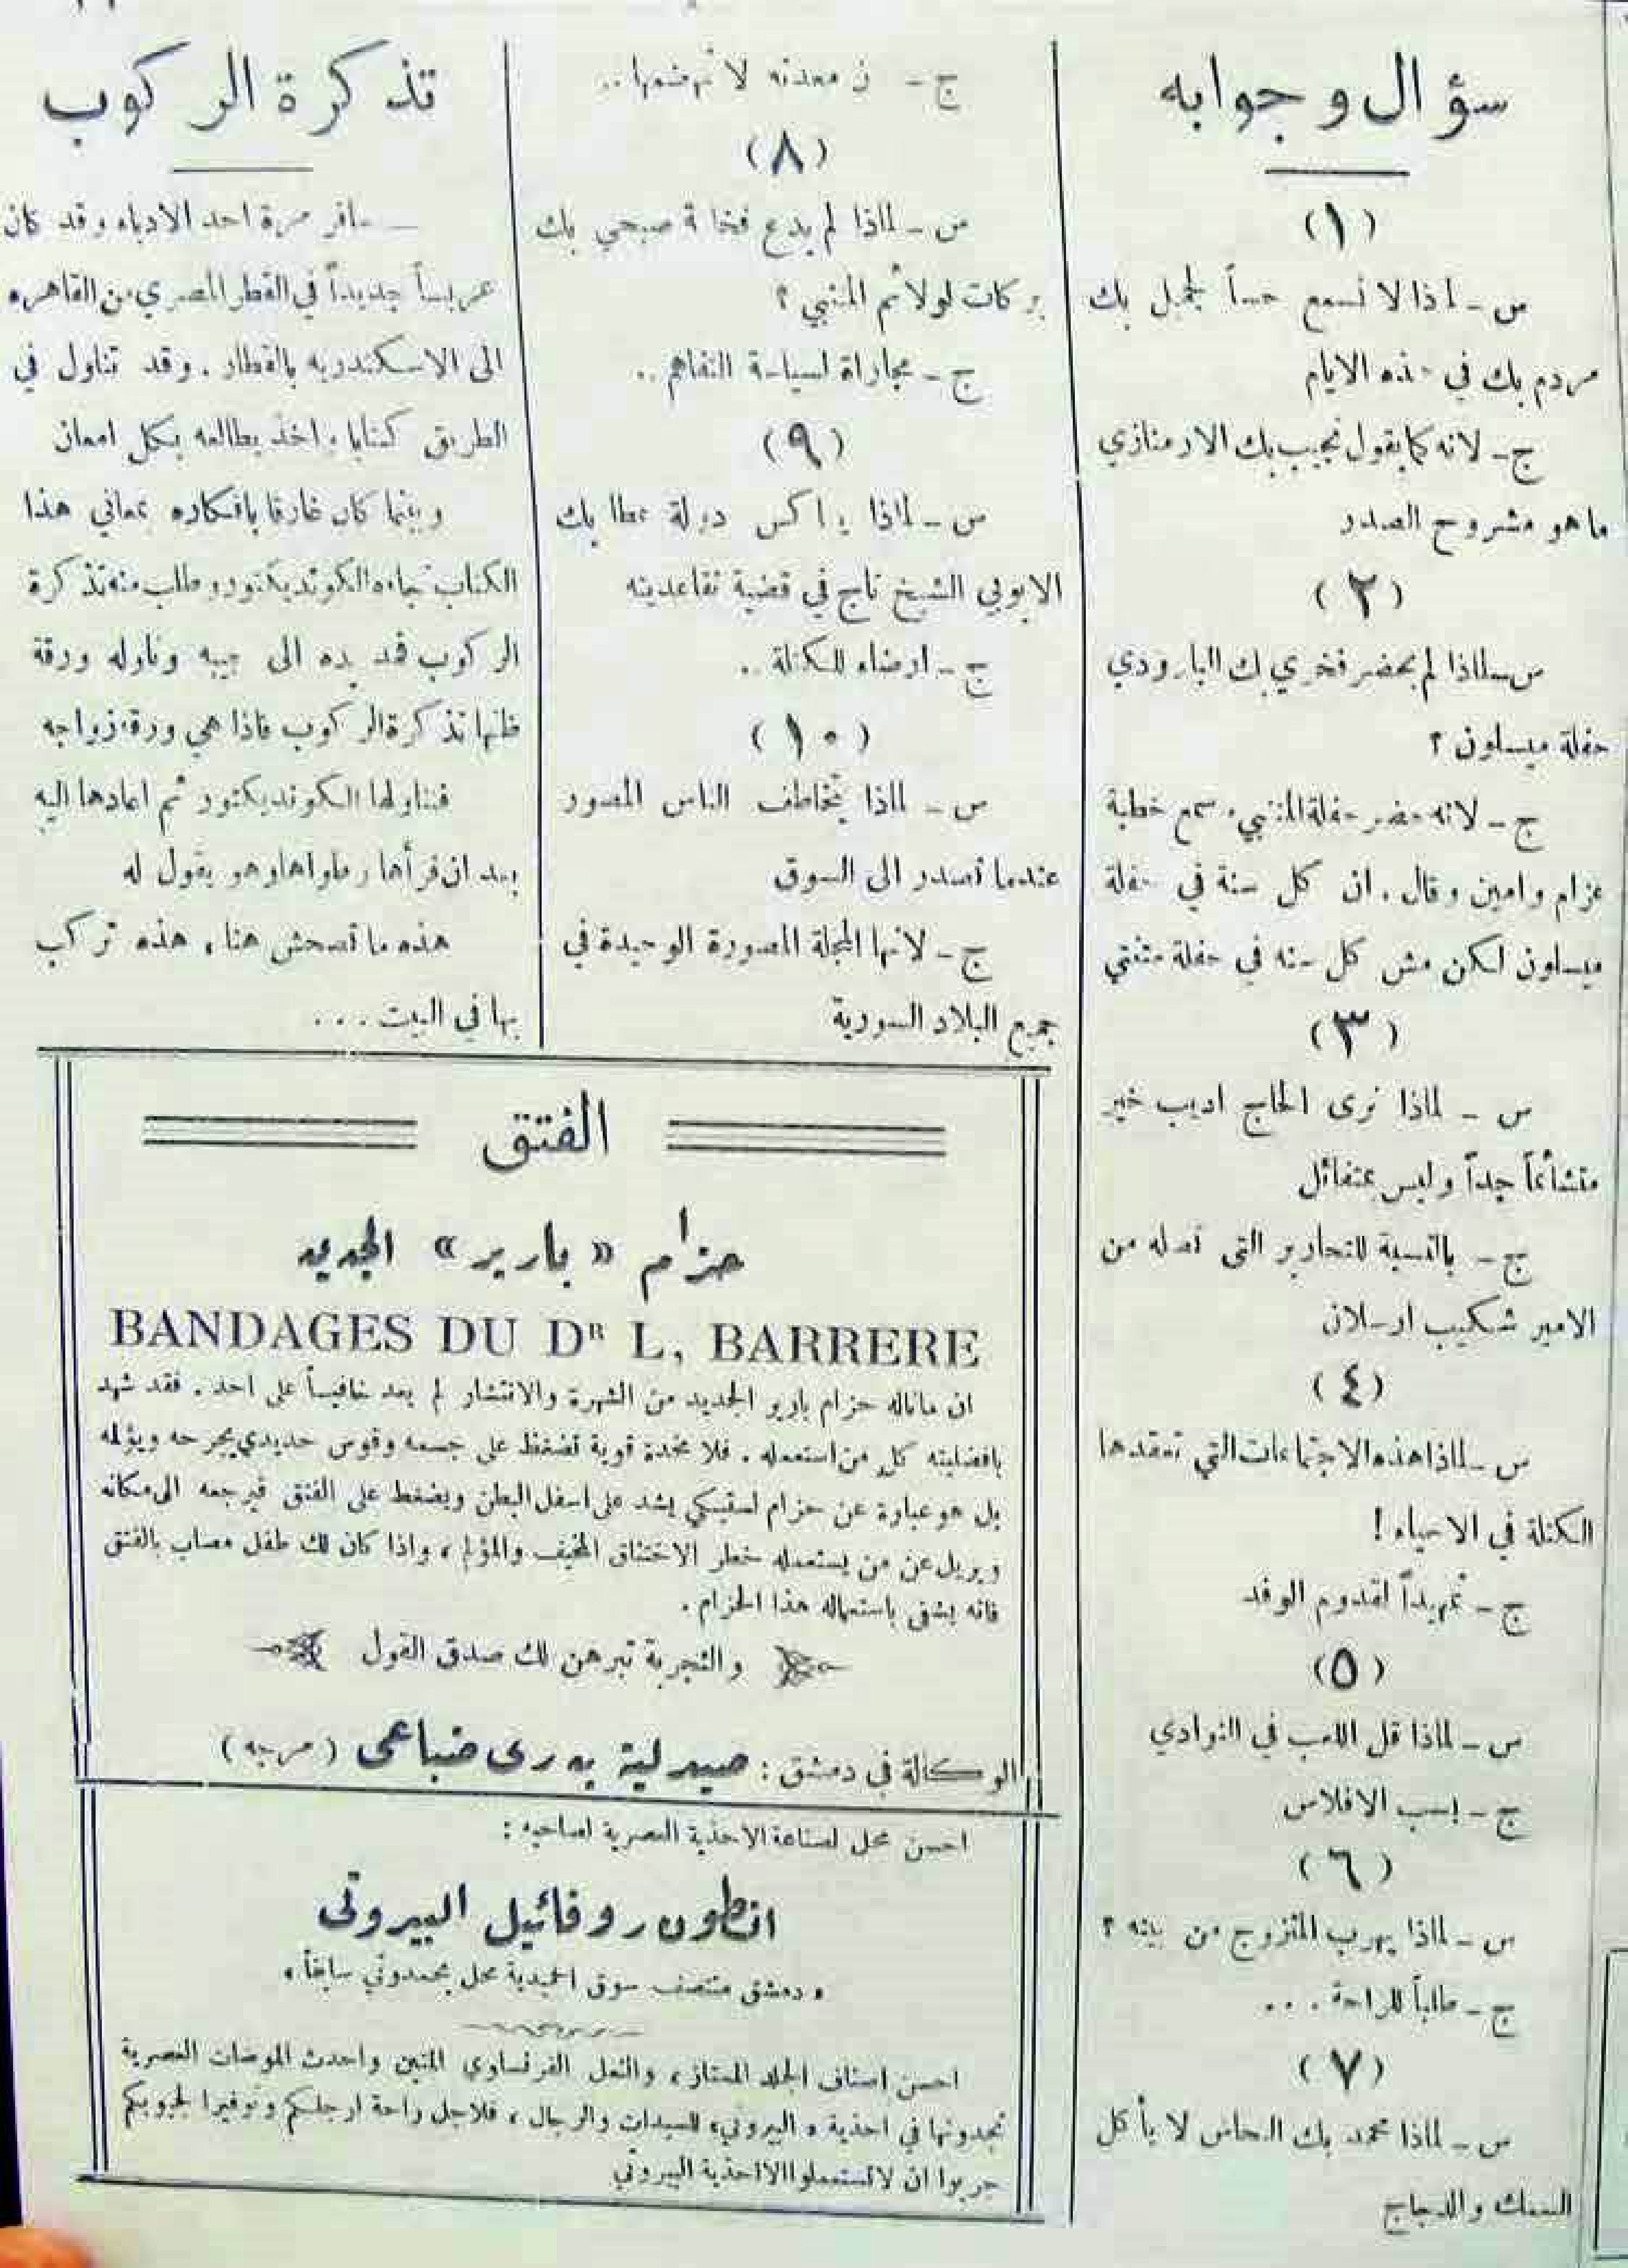 سؤال وجوابه
(١)
س ـ لماذا لا نسمع حساً لجميل بك
مردم بك في هذه الايام
ج ـ لانه كما يقول نجيب بك الارمنازي
ما هو مشروح الصدر
(٢)
س ـ لماذا لم يحضر فخري بك البارودي
حفلة ميسلون ؟
ج ـ لانه حضر حفلة المتنبي وسمع خطبة
عزام وامين وقال . ان كل سنة في حفلة
ميسلون لكن مش كل سنه في حفلة متنبي
(٣)
س ـ لماذا نرى الحاج اديب خير
متشائماً جداً وليس بمتفائل
ج ـ بالنسبة للتحارير التي تصله من
الامير شكيب ارسلان
(٤)
س ـ لماذا هذه الاجتماعات التي تعقدها
الكتلة في الاحياء !
ج ـ تمهيداً لقدوم الوفد
(٥)
س ـ لماذا قل اللعب في النوادي
ج ـ بسبب الافلاس
(٦)
س ـ لماذا يهرب المتزوج من بيته ؟
ج ـ طلباً للراحة . . .
(٧)
س ـ لماذا محمد بك النحاس لا يأكل
السمك والدجاج
ج ـ معدته لا تهضمها ..
(٨)
س ـ لماذا لم يدع فخامة صبحي بك
بركات لولائم المتنبي ؟
ج ـ مجاراة لسياسة التفاهم ..
(٩)
س ـ لماذا يعاكس دولة عطا بك
الايوبي الشيخ تاج في قضية تقاعديته
ج ـ ارضاء للكتلة ..
(١٠)
س ـ لماذا يتخاطف الناس المصور
عندما تصدر الى السوق
ج ـ لانها المجلة المصورة الوحيدة في
جميع البلاد السورية
تذكرة الركوب
ـ سافر مرة احد الادباء وقد كان
عريساً جديداً في القطر المصري من القاهره
الى الاسكندريه بالقطار . وقد تناول في
الطريق كتابا واخذ يطالعه بكل امعان
وبينما كان غارقا بافكاره بمعاني هذا
الكتاب جاءه الكونديكتور وطلب منه تذكرة
الركوب فمد يده الى جيبه وناوله ورقة
ظنها تذكرة الركوب فاذا هي ورقة زواجه
فتناولها الكونديكتور ثم اعادها اليه
بعد ان قرأها وطواها وهو يقول له
هذه ما تصحش هنا ، هذه تركب
بها في البيت . . .
الفتق
حزام « بارير » الجديد
BANDAGES DU Dᴿ L, BARRERE
ان ماناله حزام بارير الجديد من الشهرة والانتشار لم يعد خافياً على احد . فقد شهد
بافضليته كل من استعمله . فلا مخدة قوية تضغط على جسمه وقوس حديدي يجرحه ويؤلمه
بل هو عبارة عن حزام لستيكي يشد على اسفل البطن ويضغط على الفتق فيرجعه الى مكانه
ويزيل عن من يستعمله خطر الاختناق المخيف والمؤلم ، واذا كان لك طفل مصاب بالفتق
فانه يشفى باستعماله هذا الحزام .
والتجربة تبرهن لك صدق القول
الوكالة في دمشق : صيدلية بدري ضباعي ( مرجه )
احسن محل لصناعة الاحذية العصرية لصاحبه :
انطون روفائيل البيروتي
دمشق منتصف سوق الحميدية محل بحمدوني سابقاً
احسن اصناف الجلد الممتاز ، والنعل الفرنساوي المتين واحدث الموضات العصرية
تجدونها في احذية « البيروتي » للسيدات والرجال ، فلاجل راحة ارجلكم وتوفيرا لجيوبكم
جربوا ان لا تستعملوا الا احذية البيروتي